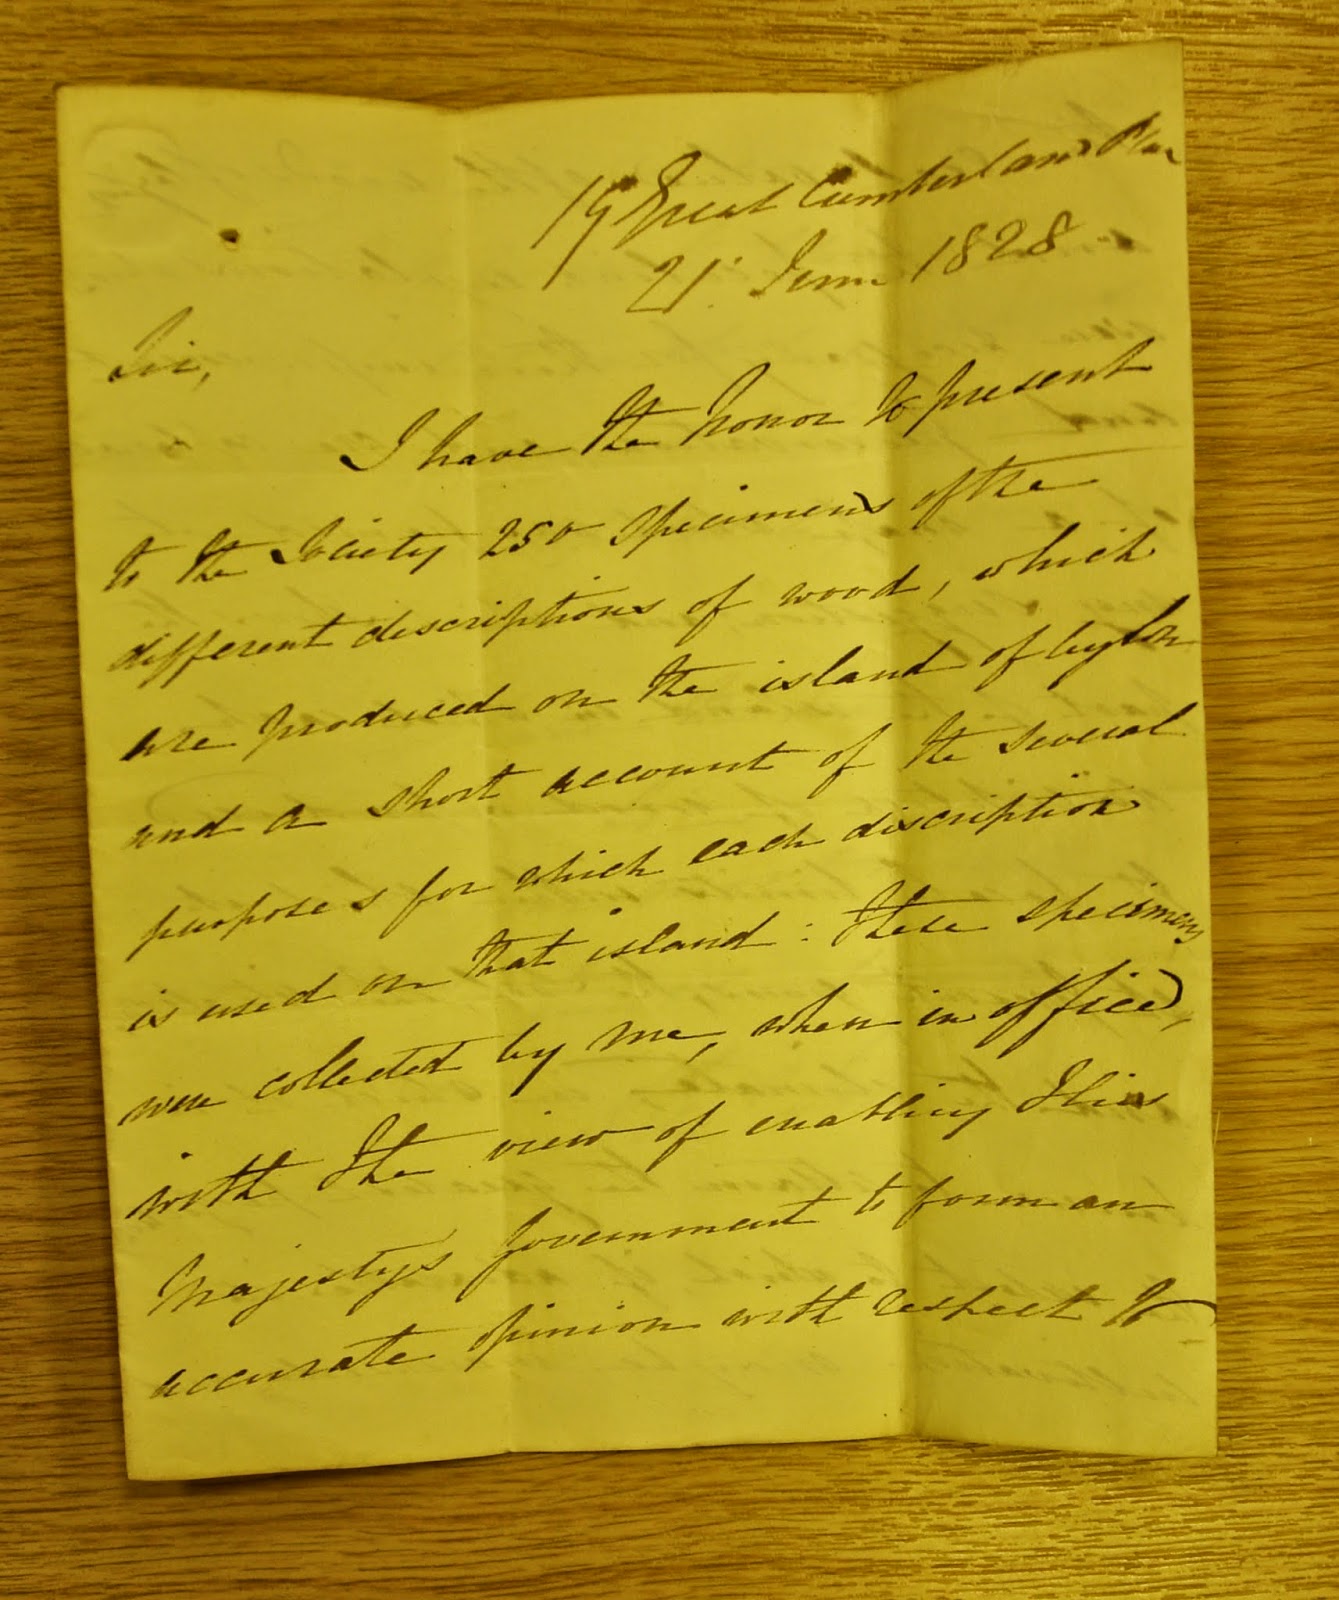 19 Great Cumberland Place
21st June 1828
Sir,
I have the honor to present
to the Society 250 specimens of the
different discriptions of wood, which
are produced on the island of Ceylon
and a short account of the several
purposes for which each discription
is used on that island: These specimens
were collected by me, when in office,
with the view of enabling His
Majestys Government to form an
accurate opinion with respect to